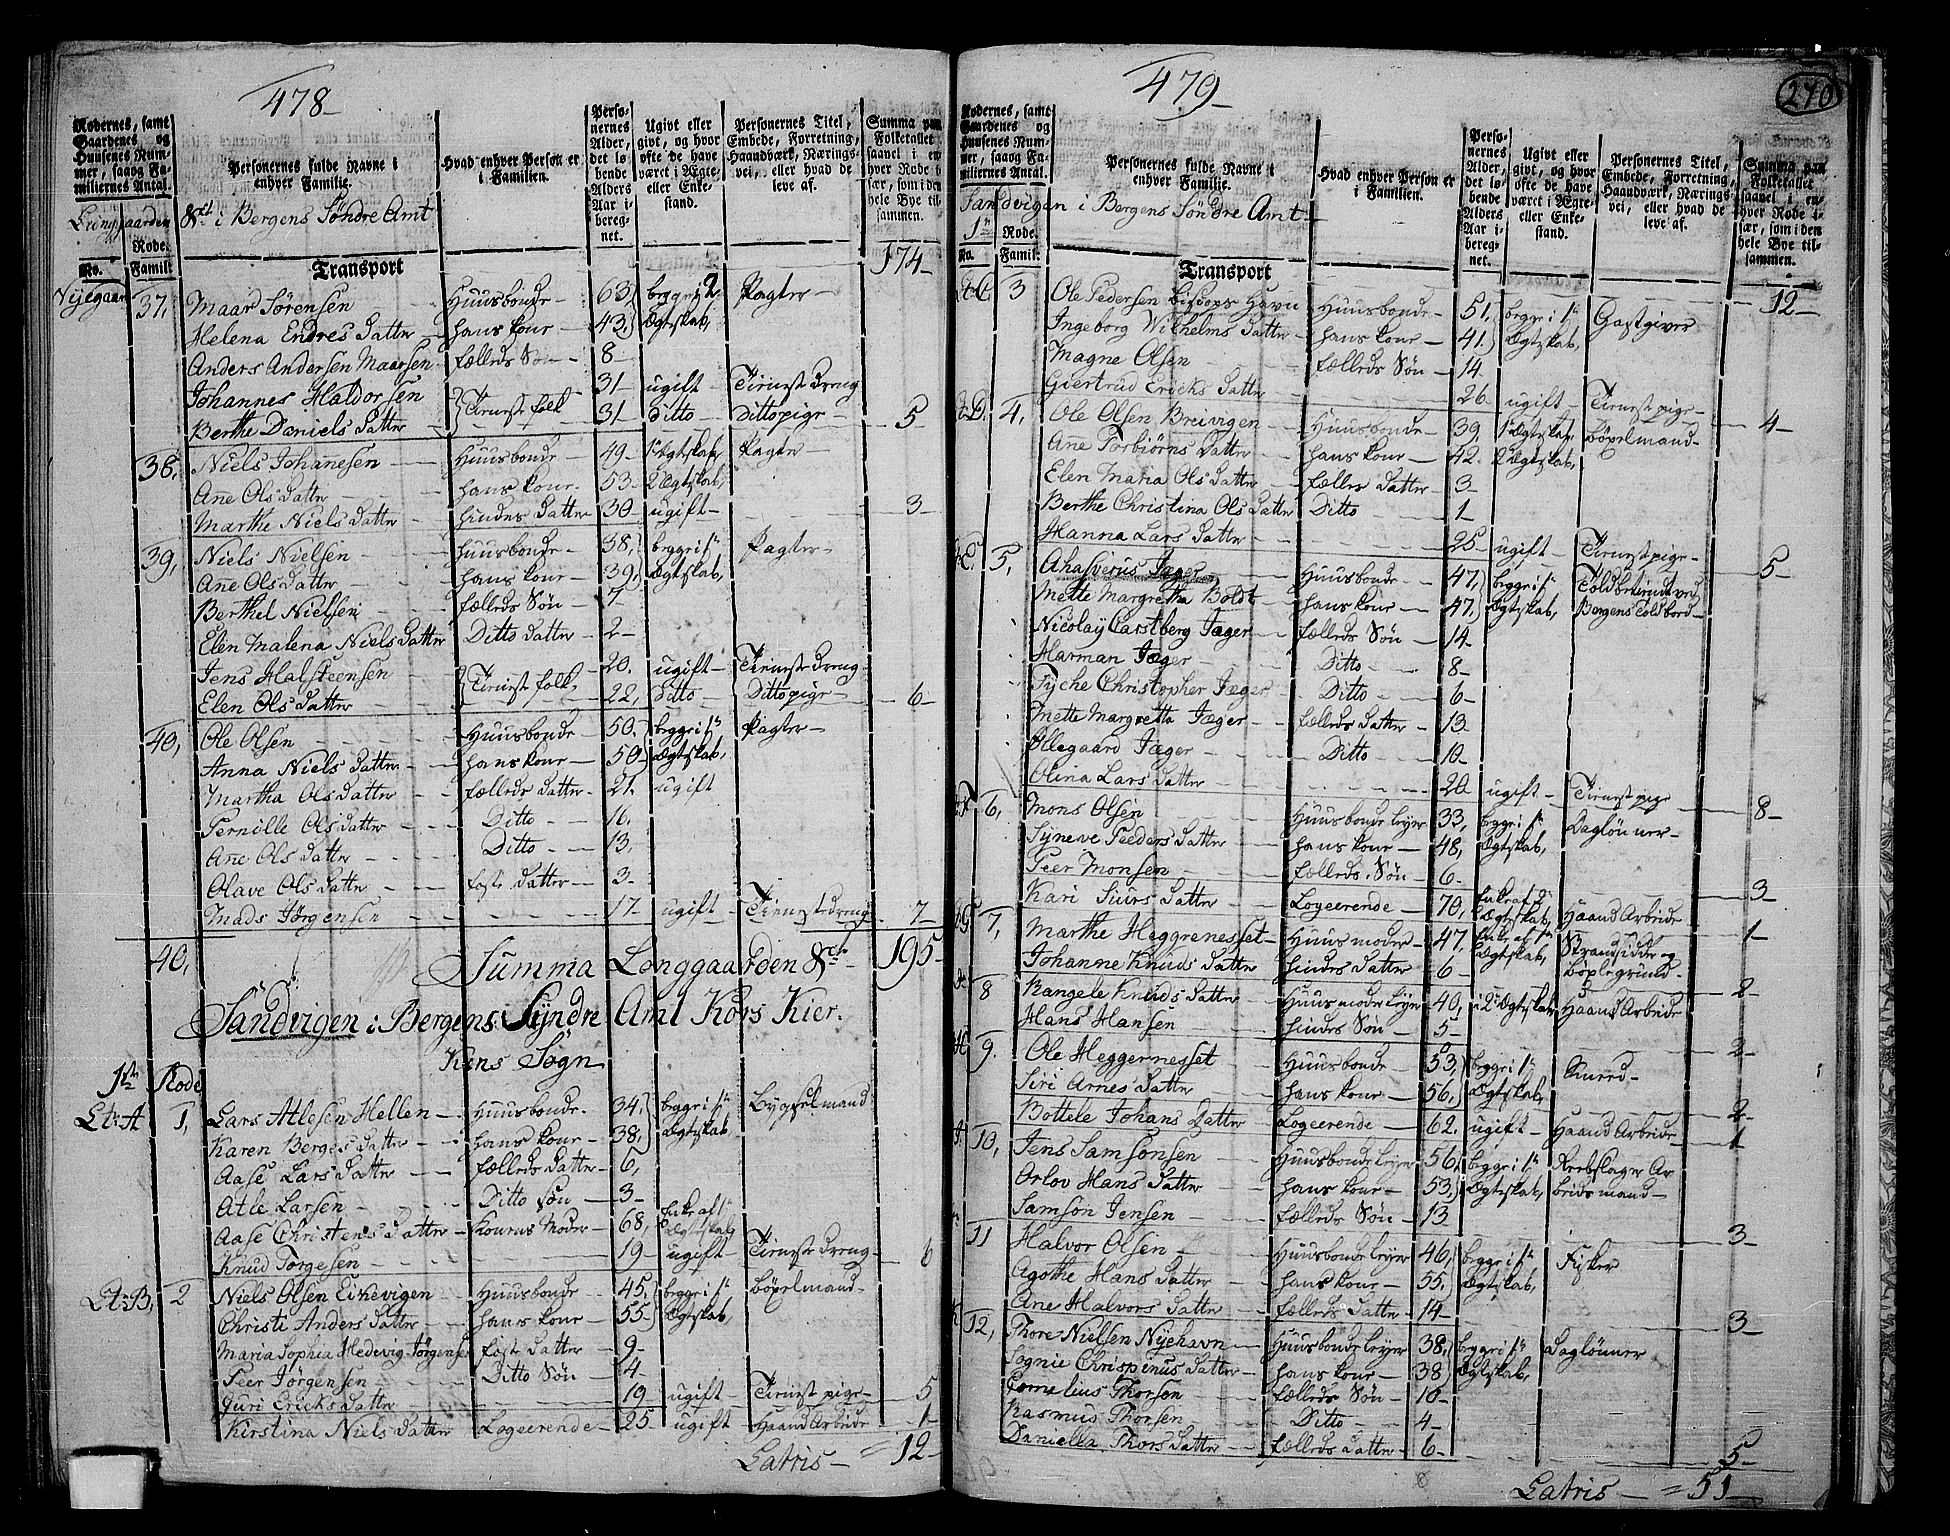 478
Rodernes, samt Gaardenes og Huusenes Nummer, saavg Familiernes Antal.
Personernes fulde Navne i enhver Familie.
Hvad enhver Person er i Familien.
Personernes Alder, det løbende Alders Aar iberegnet.
Ugivt eller givt, og hvor ofte de have været i Ægte- eller Enkestand.
Personernes Titel, Embede, Forretning, Haandværk, Næringsvei, eller hvad de leve af.
Summa paa Folketallet saavel i enhver Rode især, som i den hele Bye tilsammen.
8de i Bergens Søndre Amt
Rode.
No. Famil.
Transport 174
37, Maar Sørensen Huusbonde 63 begge i 2 Pagter
Helena Endres Datter hans kone 43 Ægtskab,
Anders Andersen Maarsen fælleds Søn 8
Johannes Haldorsen Tienestefolk 31 ugift Tieneste dreng
Berthe Daniels Datter 31 ditto ditto pige 5
38, Niels Johanesen Huusbonde 49 1 Ægtskab Pagter
Ane Ols datter hans kone 53 2 Ægtskab,
Marthe Niels datter hindes datter 30 ugift 3
39, Niels Nielsen huusbonde 38, begge i 1 Pagter
Ane Ols datter hans kone 39 Ægtskab,
Berthel Nielsen fælleds Søn 7
Elen Malena Niels datter Ditto datter 2
Jens Halsteensen Tienestfolk 20 ugift Tieneste dreng
Elen Ols datter 22, ditto Ditto pige 6
40, Ole Olsen Huusbonde 50 begge i 1 Pagter
Anna Niels datter hans kone 50 Ægtskab,
Martha Ols datter fælleds datter 21 ugift
Pernille Ols datter Ditto 16,
Ane Ols datter Ditto 13,
Olave Ols datter foste datter 3
Mads Jørgensen 17 ugift Tieneste dreng 7
40, Summa Longgaarden 8de 195
Sandvigen i Bergens Syndre Amt Kors Kier.
Kens Sogn
1ste Rode
Ltr A 1, Lars Atlesen Hellen Huusbonde 34 begge i 1 Bygselmand
Karen Berges datter hans kone 38, Ægtskab,
Aase Lars datter fælleds datter 6,
Atle Larsen Ditto søn 3
Aase Christens datter Konens Moder 68, Enke af 1 Ægtskab
Knud Torgesen 19 ugift Tieneste dreng 6
Ltr B, 2 Niels Olsen Eikevigen Huusbonde 45, begge i 1 böxelmand
Christi Anders datter hans kone 55 Ægtskab,
Maria Sophia Hedevig Jørgensen foste datter 9
Peer Jørgensen Ditto Søn 4
Guri Ericks datter 19 ugift Tieneste pige 5
Kirstina Niels datter Logeerende 25 ugift Haand Arbeide 1
Latris = 12
479
270
Rodernes, samt Gaardenes og Huusenes Nummer, saavg Familiernes Antal.
Personernes fulde Navne i enhver Familie.
Hvad enhver Person er i Familien.
Personernes Alder, det løbende Alders Aar iberegnet.
Ugivt eller givt, og hvor ofte de have været i Ægte- eller Enkestand.
Personernes Titel, Embede, Forretning, Haandværk, Næringsvei, eller hvad de leve af.
Summa paa Folketallet saavel i enhver Rode især, som i den hele Bye tilsammen.
Sandvigen i Bergens Søndre Amt
1te Rode.
No. Famil.
Transport 12
C 3 Ole Pedersen Bisdops Havn Huusbonde 51, begge i 1 Gastgiver
Ingeborg Wilhelms datter hans kone 41. Ægtskab,
Magne Olsen fælleds Søn 14
Giertrud Ericks datter 26 ugift Tienest pige 4
D, 4, Ole Olsen Breivigen Huusbonde 39, 1 Ægtskab, böxelmand
Ane Torbiørns datter hans kone 42. 2 Ægtskab,
Elen Maria Ols datter fælles datter 3
Berthe Christina Ols datter Ditto 1
Hanna Lars datter 25 ugift Tienest pige 5
E. 5, Ahasverus Jæger Huusbonde 47, begge i 1 Toldbetiendt ved
Mette Margretha Boldt hans kone 47, Ægtskab, Bergens Toldbord
Nicolaÿ Carstberg Jæger fælleds Søn 14
Harman Jæger Ditto 8
Tyche Christopher Jæger Ditto 6
Mette Margretta Jæger fælleds datter 13
Øllegaard Jæger Ditto 10
Olina Lars datter 20 ugift Tienest pige 8
F 6, Mons Olsen Huusbonde leyer 33, begge i 1 Dagløn ner
Syneve Peeders datter hans kone 48, Ægtskab,
Peer Monsen fælleds Søn 6 3
Kari Siurs datter Logeerende 70, Enke af 2 Ægtskab, Haand Arbeide 1
G 7, Marthe Heggrenesset Huus moder 47, Enke af 1 Ægtskab, Strandsidder og
Johanne Knuds datter hindes datter 6 böxlegrund 2
8 Rangele Knuds datter Huus moder leyer 40, i 2 Ægtskab Haand Arbeide
Hans Hansen hindes Søn 5 2
H 9. Ole Heggernesset Huusbonde 53, begge i 1
Siri Arnes datter hans kone 56, Ægtskab, 2
Bottele Johans datter Logeerende 62. ugift Haand Arbeide 1
10, Jens Samsonsen Huusbonde leyer 56, begge i 1 Reebslager Ar
Orlov Hans datter hans kone 53, Ægtskab, beids mand
Samson Jensen fælleds Søn 13 3
11 Halvor Olsen Huusbonde leyer 46, begge i 1 Fisker
Agothe Hans datter hans kone 55, Ægtskab,
Ane Halvors datter fælleds datter 14 3
12, Thore Nielsen Nyehavn Huusbonde leyer 38, begge i 1 Daglönner
Sognie Chrispinus datter hans kone 38 Ægtskab,
Cornelius Thorsen fælleds Søn 10
Rasmus Thorsen Ditto 4
Daniella Thors datter fælleds datter 6 5
Latris = 51